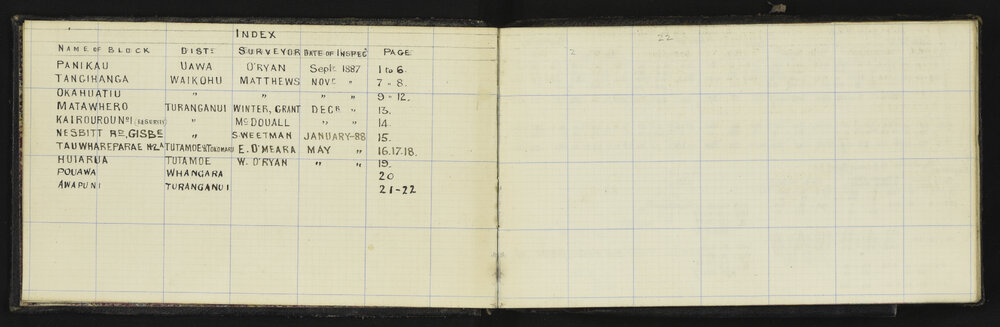 INDEX
NAME OF BLOCK DISTT SURVEYOR DATE OF INSPECN PAGE
PANIKAU UAWA O'RYAN Sept. 1887 1 to 6.
TANGIHANGA WAIKOHU MATTHEWS NOVR " 7 - 8.
OKAHUATIU " " " " 9 - 12.
MATAWHERO TURANGANUI WINTER, GRANT DECR " 13.
KAIROUROU No1 (RESURVEY) " McDOUALL " " 14.
NESBITT RD, GISBE " SWEETMAN JANUARY-88 15.
TAUWHAREPARAE No2A TUTAMOE & TOKOMARU E. O'MEARA MAY " 16.17.18.
HUIARUA TUTAMOE W. O'RYAN " " 19.
POUAWA WHANGARA 20
AWAPUNI TURANGANUI 21-22
22